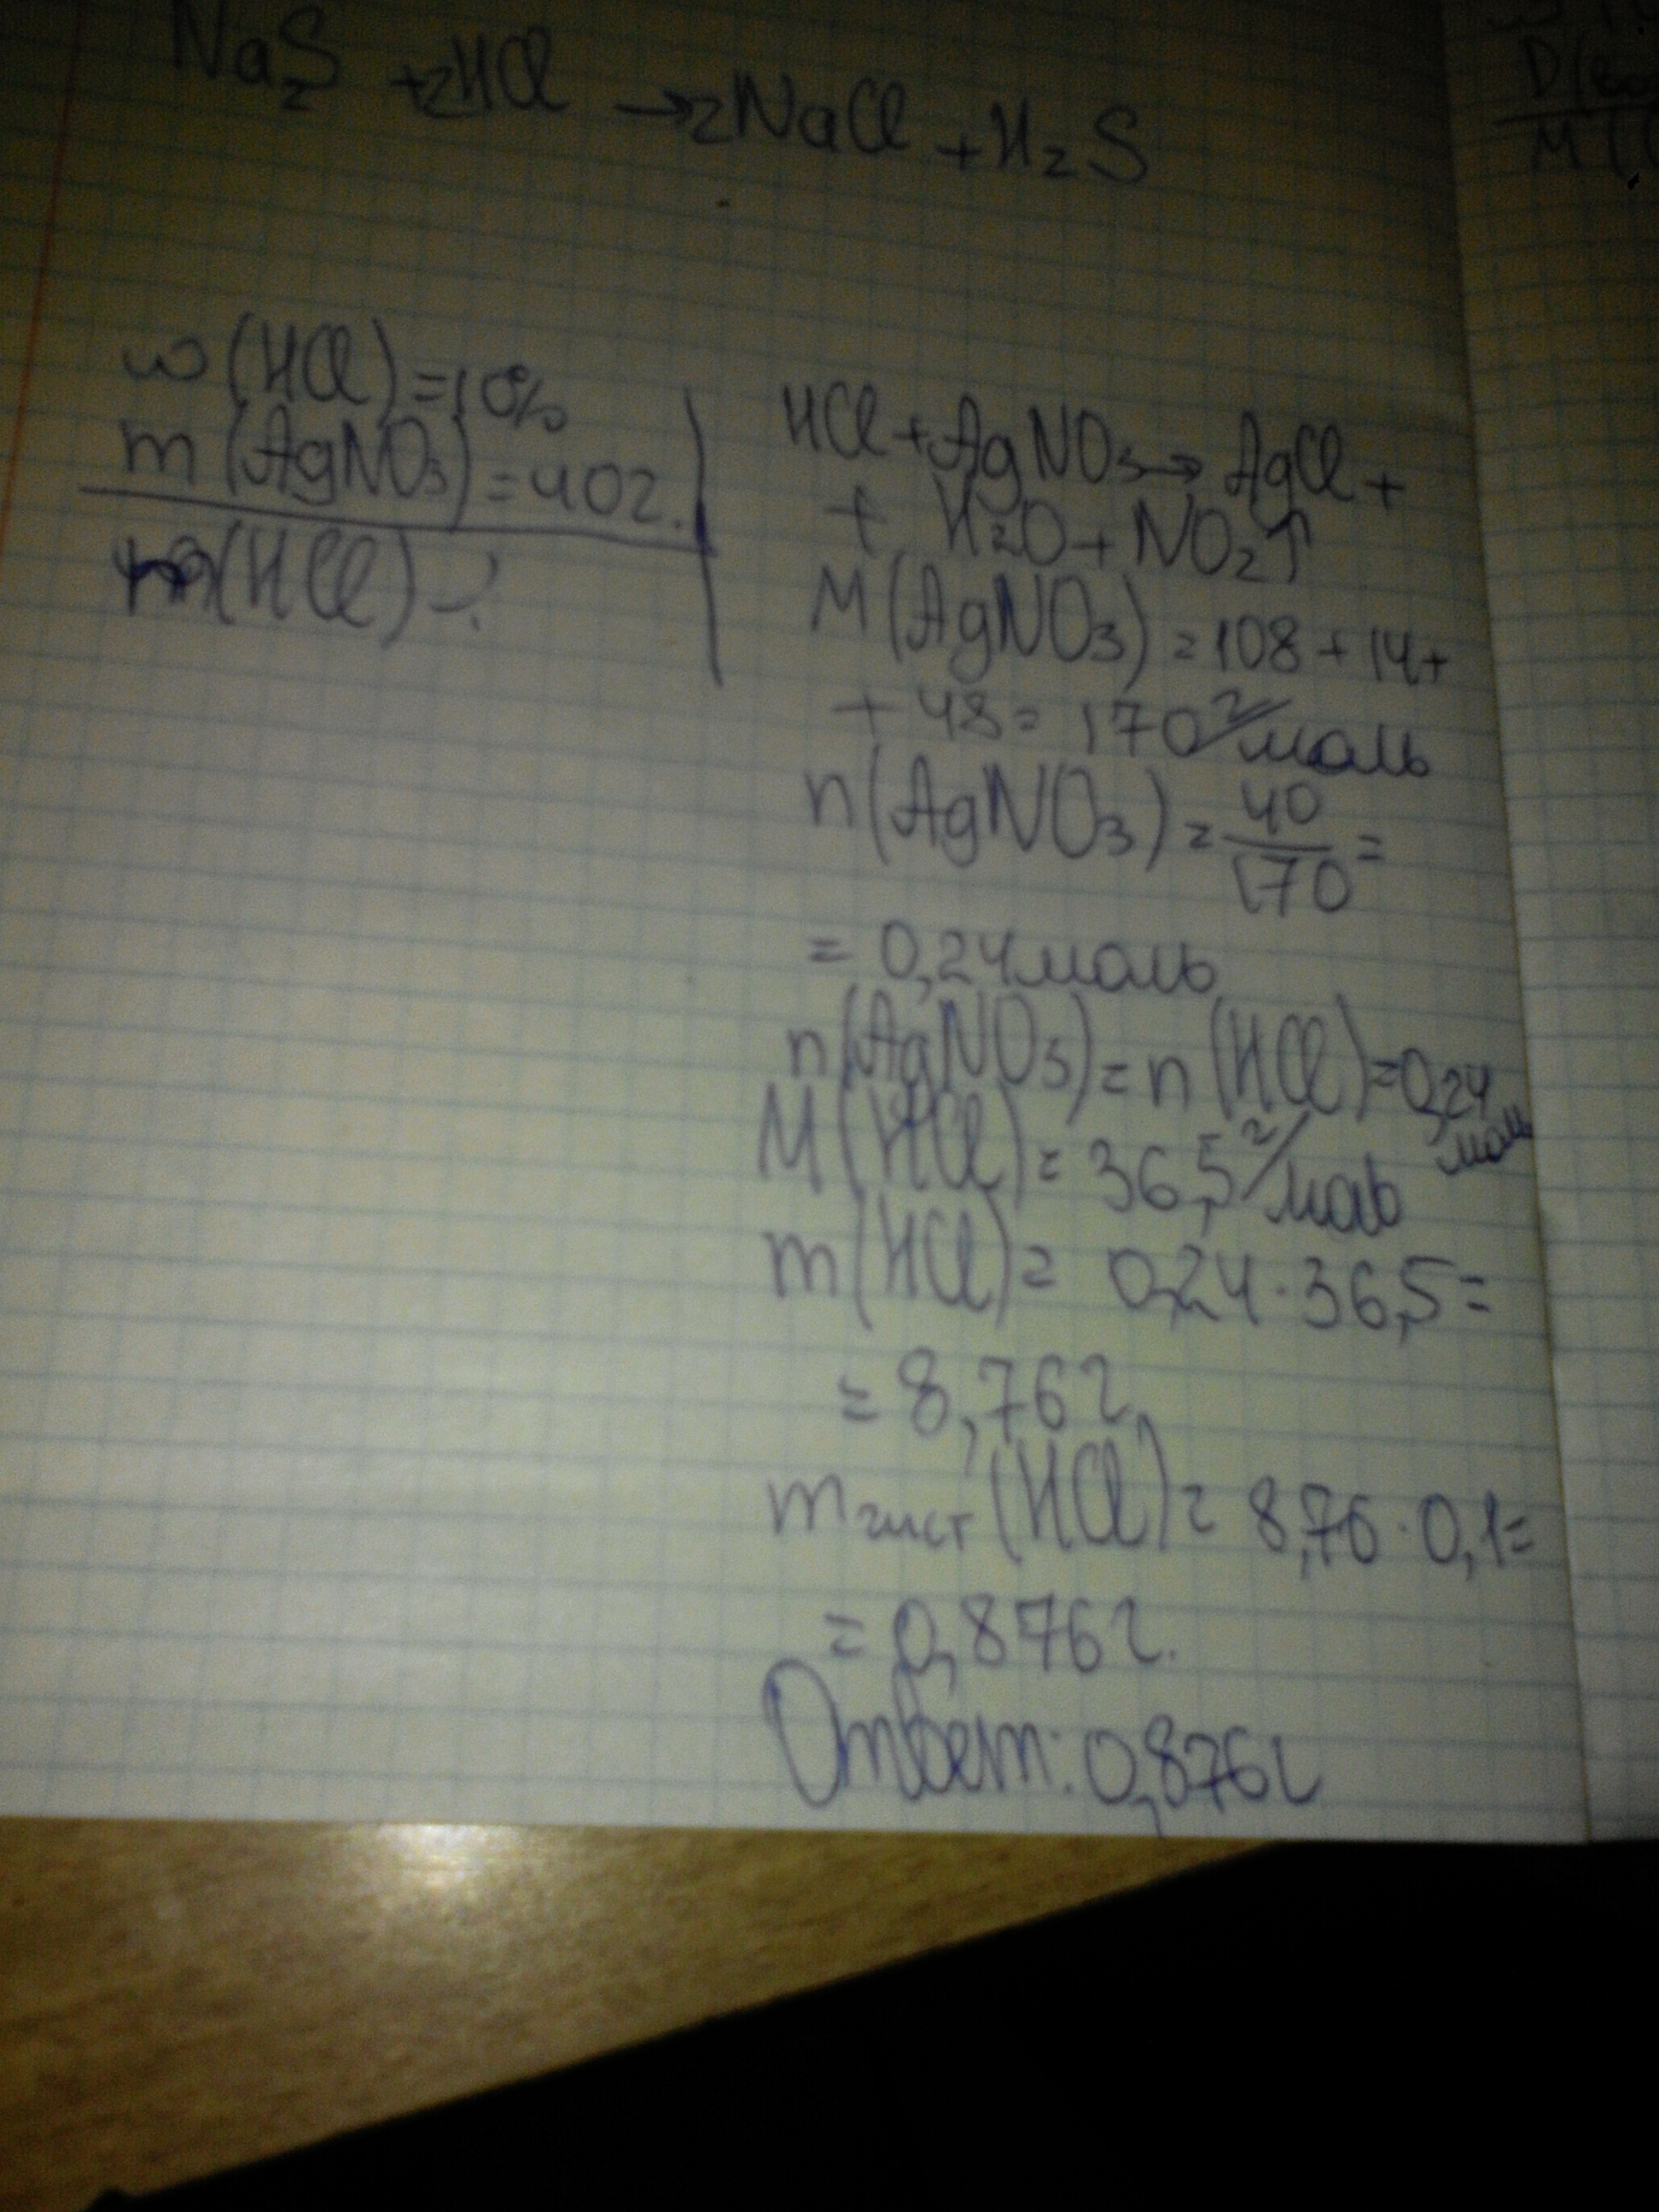 Na₂S +2HCl →2NaCl +H₂S
w(HCl)=10%
m(AgNO₃)=40г.
m(HCl)-?
HCl+AgNO₃→AgCl+
+ H₂O+NO₂↑
M(AgNO₃)=108+14+
+48=170г/моль
n(AgNO₃)=40/170=
=0,24моль
n(AgNO₃)=n(HCl)=0,24
моль
M(HCl)=36,5г/моль
m(HCl)= 0,24·36,5=
=8,76г.
mчист(HCl)=8,76·0,1=
=0,876г.
Ответ:0,876г